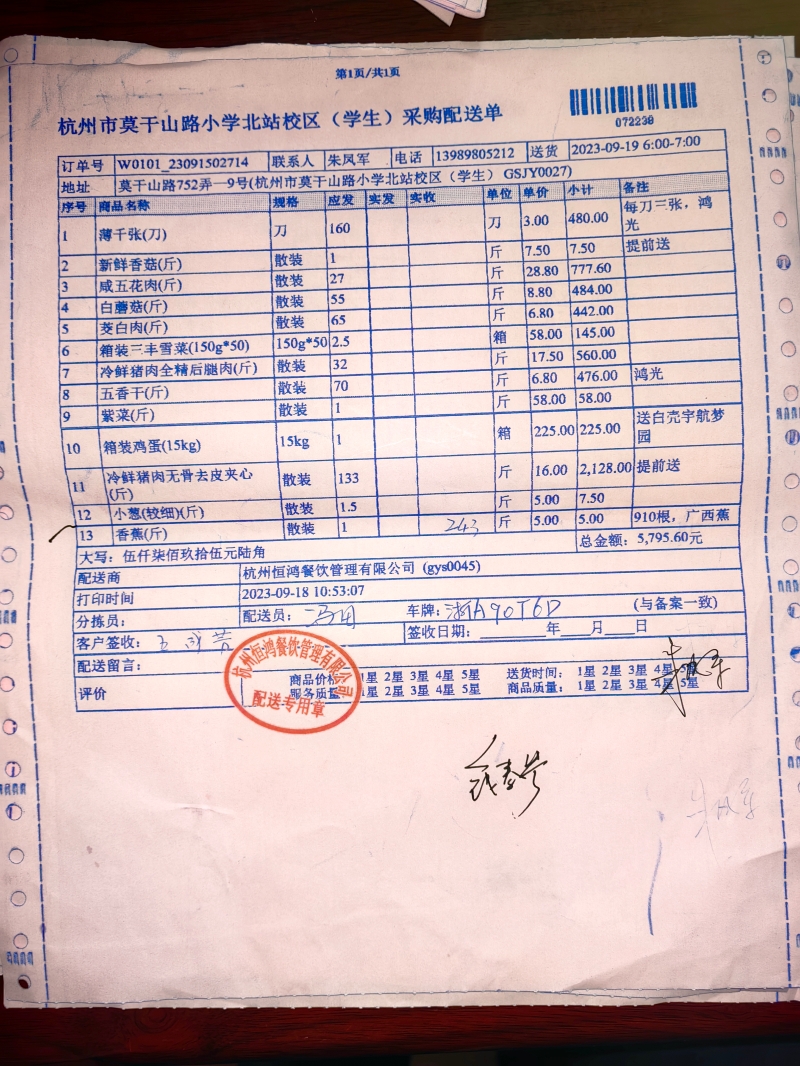 第1页/共1页
杭州市莫干山路小学北站校区（学生）采购配送单
072239
订单号 W0101_23091502714 联系人 朱凤军 电话 13989805212 送货 2023-09-19 6:00-7:00
地址 莫干山路752弄一9号(杭州市莫干山路小学北站校区（学生） GSJY0027)
序号 商品名称 规格 应发 实发 实收 单位 单价 小计 备注
1 薄千张(刀) 刀 160 刀 3.00 480.00 每刀三张，鸿光
2 新鲜香菇(斤) 散装 1 斤 7.50 7.50 提前送
3 咸五花肉(斤) 散装 27 斤 28.80 777.60
4 白蘑菇(斤) 散装 55 斤 8.80 484.00
5 茭白肉(斤) 散装 65 斤 6.80 442.00
6 箱装三丰雪菜(150g*50) 150g*50 2.5 箱 58.00 145.00
7 冷鲜猪肉全精后腿肉(斤) 散装 32 斤 17.50 560.00
8 五香干(斤) 散装 70 斤 6.80 476.00 鸿光
9 紫菜(斤) 散装 1 斤 58.00 58.00
10 箱装鸡蛋(15kg) 15kg 1 箱 225.00 225.00 送白壳宇航梦园
11 冷鲜猪肉无骨去皮夹心(斤) 散装 133 斤 16.00 2,128.00 提前送
12 小葱(较细)(斤) 散装 1.5 斤 5.00 7.50
13 香蕉(斤) 散装 1 243 斤 5.00 5.00 910根，广西蕉
大写：伍仟柒佰玖拾伍元陆角 总金额：5,795.60元
配送商 杭州恒鸿餐饮管理有限公司 (gys0045)
打印时间 2023-09-18 10:53:07
分拣员： 配送员： 车牌：浙A90T6D (与备案一致)
客户签收： 签收日期：________年____月____日
配送留言：
评价 商品价格 1星 2星 3星 4星 5星 送货时间： 1星 2星 3星 4星 5星
服务质量 1星 2星 3星 4星 5星 商品质量： 1星 2星 3星 4星 5星
杭州恒鸿餐饮管理有限公司
配送专用章
朱凤军
朱凤军